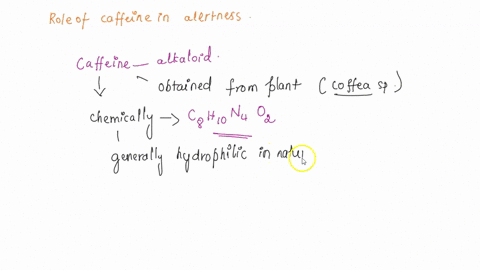 Role of caffeine in alertness.
Caffeine — alkaloid.
obtained from plant (coffea sp.)
chemically → C8H10N4O2
generally hydrophilic in natu